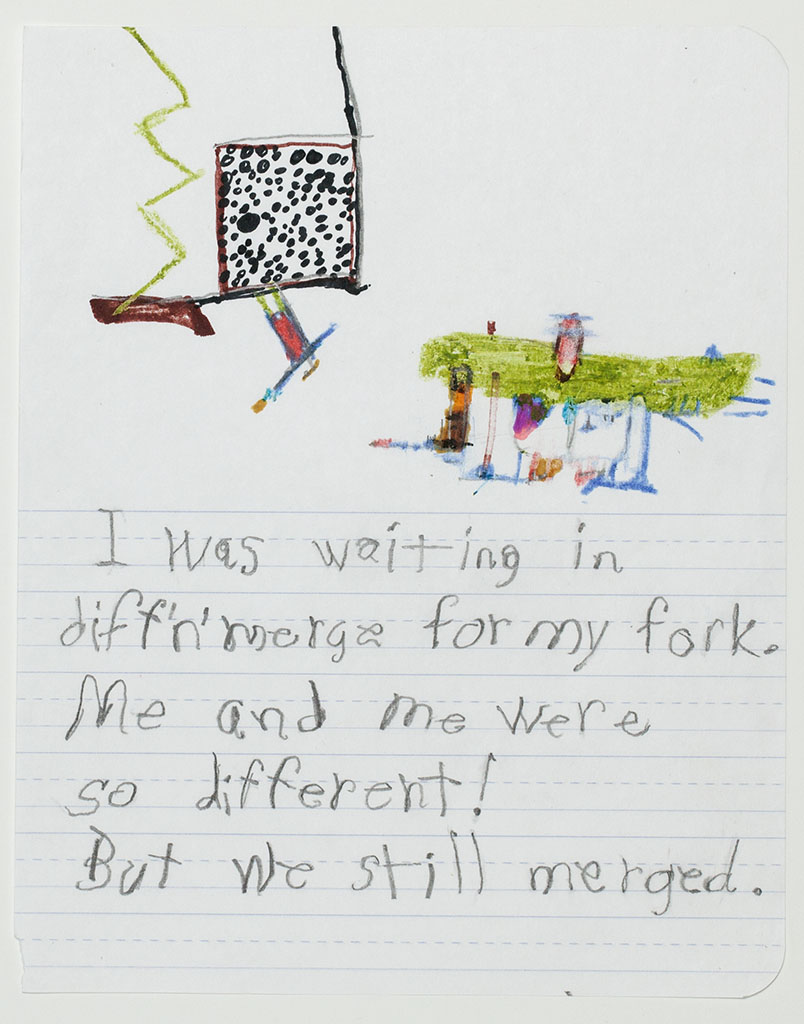 I was waiting in
diff'n'merge for my fork.
Me and me were
so different!
But we still merged.